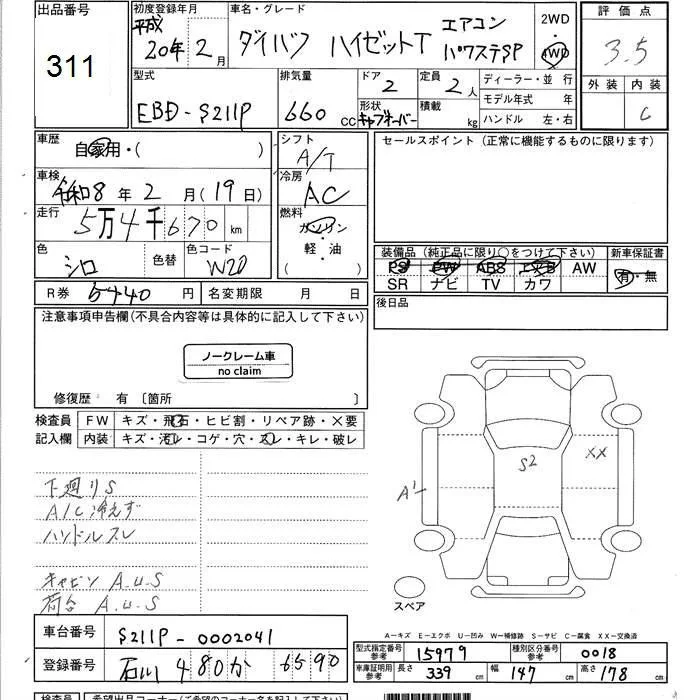 出品番号
311
初度登録年月
平成
20年2月
車名・グレード
ダイハツ ハイゼットT エアコン
パワステSP
2WD
・
4WD
評価点
3.5
外装 内装
C
型式
EBD-S211P
排気量
660 cc
ドア
2
定員
2人
形状
キャブオーバー
積載
kg
ディーラー・並行
モデル年式 年
ハンドル 左・右
車歴
自家用・( )
シフト
A/T
車検
令和8年2月(19日)
冷房
AC
走行
5万4千670km
燃料
ガソリン
・
軽・油
( )
色
シロ
色替
色コード
W20
R券 5440円
名変期限 月 日
セールスポイント(正常に機能するものに限ります)
装備品(純正品に限り○をつけて下さい)
新車保証書
PS PW ABS エアB AW
有・無
SR ナビ TV カワ
後日品
注意事項申告欄(不具合内容等は具体的に記入して下さい)
ノークレーム車
no claim
修復歴 有〔箇所 〕
検査員
記入欄
FW キズ・飛石・ヒビ割・リペア跡・X要
内装 キズ・汚レ・コゲ・穴・スレ・キレ・破レ
下廻りS
A/C冷えず
ハンドルスレ
キャビン A.U.S
荷台 A.U.S
S2
XX
A1
スペア
A-キズ E-エクボ U-凹み W-補修跡 S-サビ C-腐食 XX-交換済
車台番号
S211P-0002041
登録番号
石川 480 か 6590
型式指定番号
参考
15979
種別区分番号
参考
0018
車庫証明用
参考
長さ 339cm
幅 147cm
高さ 178cm
検査員
希望出品コーナー(ご希望のコーナー名を記入して下さい)